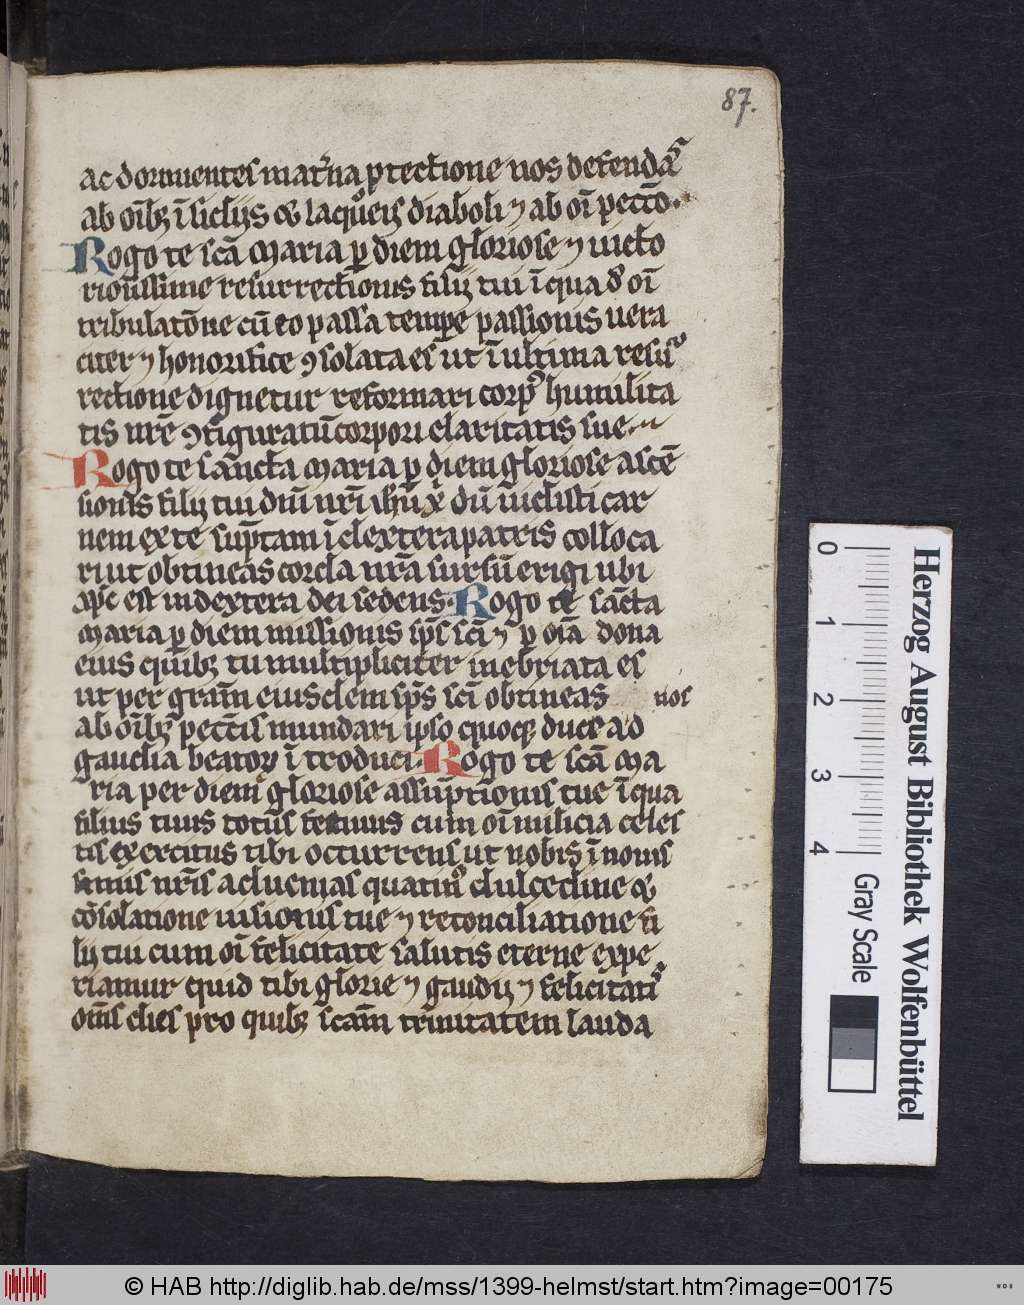 87.
ac dormientes mat̓na p̱tectione nos defendas
ab oı̄bꝫ ı̄sidijs ⁊ laqueis diaboli ⁊ ab oı̄ pecc̄o.
Rogo te sc̄a maria ꝑ diem gloriose ⁊ uicto
riosissime resurrectionis filij tui ı̄ qua d̓ oı̄
tribulatōne cū eo passa tempe passionis uera
citer ⁊ honorifice ꝯsolata es ut ı̄ ultima resur
rectione dignetur reformari corpꝰ humilita
tis nr̄e ꝯfiguratū corpori claritatis sue.
Rogo te sancta maria ꝑ diem gloriose ascē
sionis filij tui dn̄i nr̄i ih̄u x̄ dū ı̄uehisti car
nem ex te sup̄tam ı̄ dextera patris colloca
ri ut obtineas corda nr̄a sursū erigi ubi
xp̄c est in dextera dei sedens. Rogo te sāc̄ta
maria ꝑ diem missionis sp̄s sc̄i ⁊ ꝑ oı̄a dona
eius quibꝫ tu multipliciter inebriata es
ut per gr̄am eiusdem sp̄s sc̄i obtineas nos
ab oı̄bꝫ pecc̄is mundari ipso quoqꝫ duce ad
gaudia beatoꝝ ı̄troduci. Rogo te sc̄a ma
ria per diem gloriose assūptionis tue ı̄ qua
filius tuus totus festiuus cum oı̄ milicia celes
tis exercitus tibi occurrens ut nobis ı̄ nouis
simis nr̄is aduenias quatinꝰ dulcedine ⁊
cōsolatione uisionis tue ⁊ reconciliatione fi
lij tui cum oı̄ felicitate salutis eterne expe
riamur quid tibi glorie ⁊ gaudij ⁊ felicitatis
om̄s dies pro quibꝫ sc̄am trinitatem lauda
Herzog August Bibliothek Wolfenbüttel
0 1 2 3 4 Gray Scale
© HAB http://diglib.hab.de/mss/1399-helmst/start.htm?image=00175